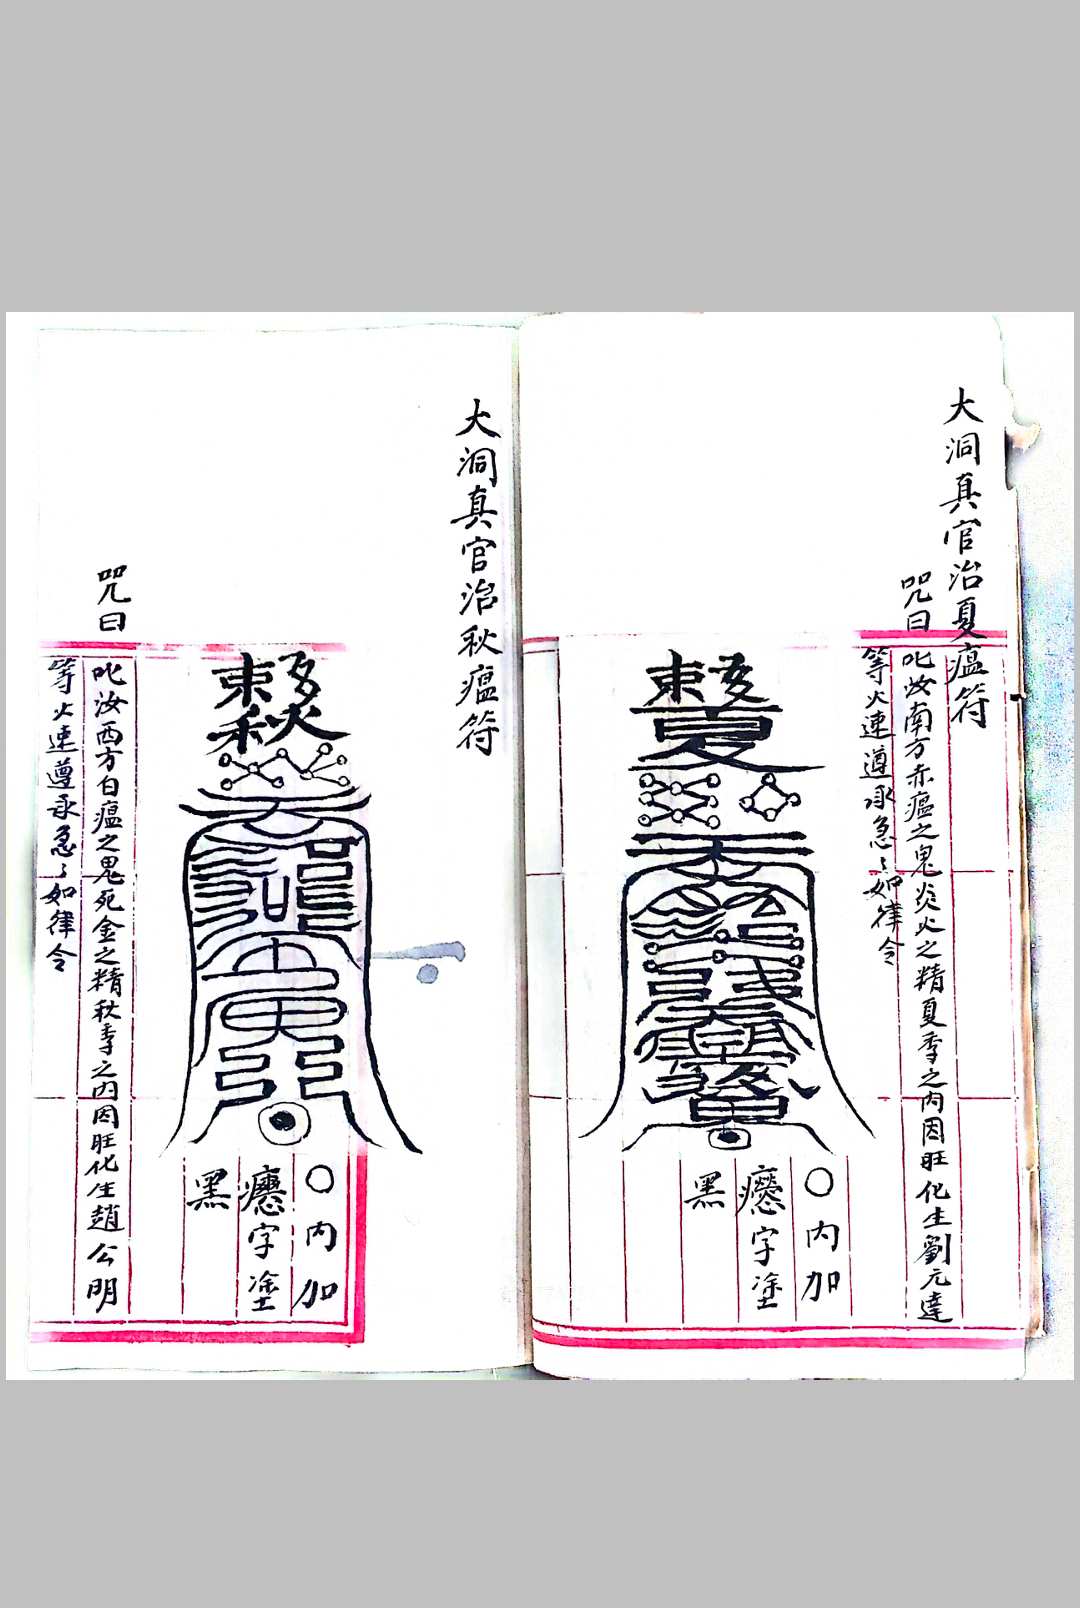 大洞真官治夏瘟符
咒曰
叱汝南方赤瘟之鬼炎火之精夏季之内因旺化生劉元達
等火速遵承急々如律令
敕夏
〇内加
字塗
黑
大洞真官治秋瘟符
敕秋
〇内加
字塗
黑
咒曰
叱汝西方白瘟之鬼死金之精秋季之内因旺化生趙公明
等火速遵承急々如律令